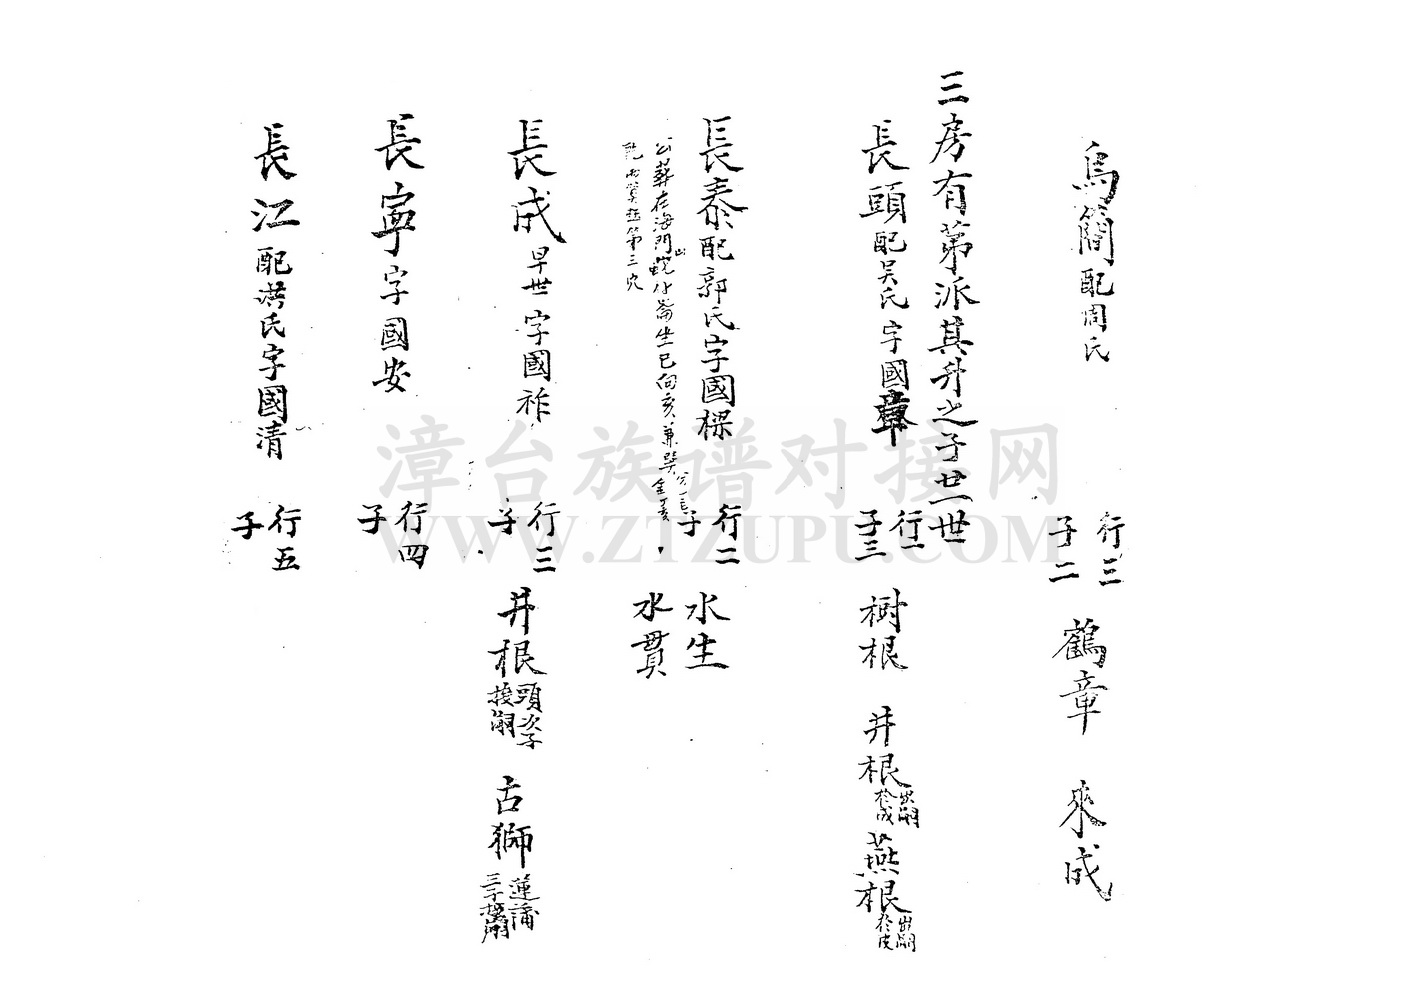 烏簡配周氏 行三 子二 鶴章 來成
三房有第派其升之子廿一世
長頭配吳氏字國章 行一 子三 樹根 井根出嗣於成 燕根出嗣於皮
長泰配郭氏字國樑 行二 子 水生 水貫
公葬在海門山 仔崙坐巳向亥兼巽 分金丁亥
第三穴
長成早世字國祚 行三 子 井根頭次子接嗣 古獅蓮蒲三子接嗣
長寧字國安 行四 子
長江配洪氏字國清 行五 子
漳台族谱对接网
WWW.ZTZUPU.COM